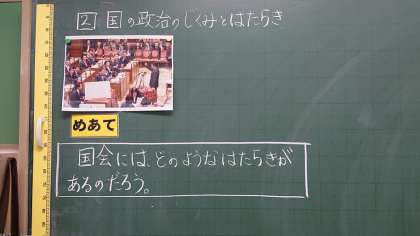 2 国の政治のしくみとはたらき
めあて
国会には、どのようなはたらきが
あるのだろう。